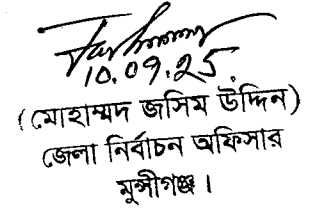 10.09.25
(মোহাম্মদ জসিম উদ্দিন)
জেলা নির্বাচন অফিসার
মুন্সীগঞ্জ।